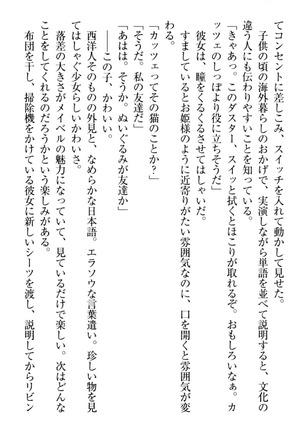 てコンセントに差しこみ、スイッチを入れる。
子供の頃の海外暮らしのおかげで、文化の
違う人にも伝わりやすいことを知っている。
「きゃあっ。このダスター、スイッと拭くとほこりが取れるぞ。おもしろいなぁ。カ
ッツェのしっぽより役に立ちそうだ」
彼女は、瞳をくるくるさせてはしゃいだ。
すましているとお姫様のように近寄りがたい雰囲気なのに、口を開くと雰囲気が変
わる。
「カッツェってその猫のことか？」
「そうだ。私の友達だ」
「あはは。そうか、ぬいぐるみが友達か」
――この子、かわいい。
西洋人そのものの外見と、なめらかな日本語。エラソウな言葉遣い。珍しい物を見
てはしゃぐ少女らしいかわいさ。
落差の大きさがメイベルの魅力になっていて、見ているだけで楽しい。次はどんな
ことをしてくれるのだろうかという楽しみまである。
布団を干し、掃除機をかけている彼女に新しいシーツを渡し、説明してからリビン